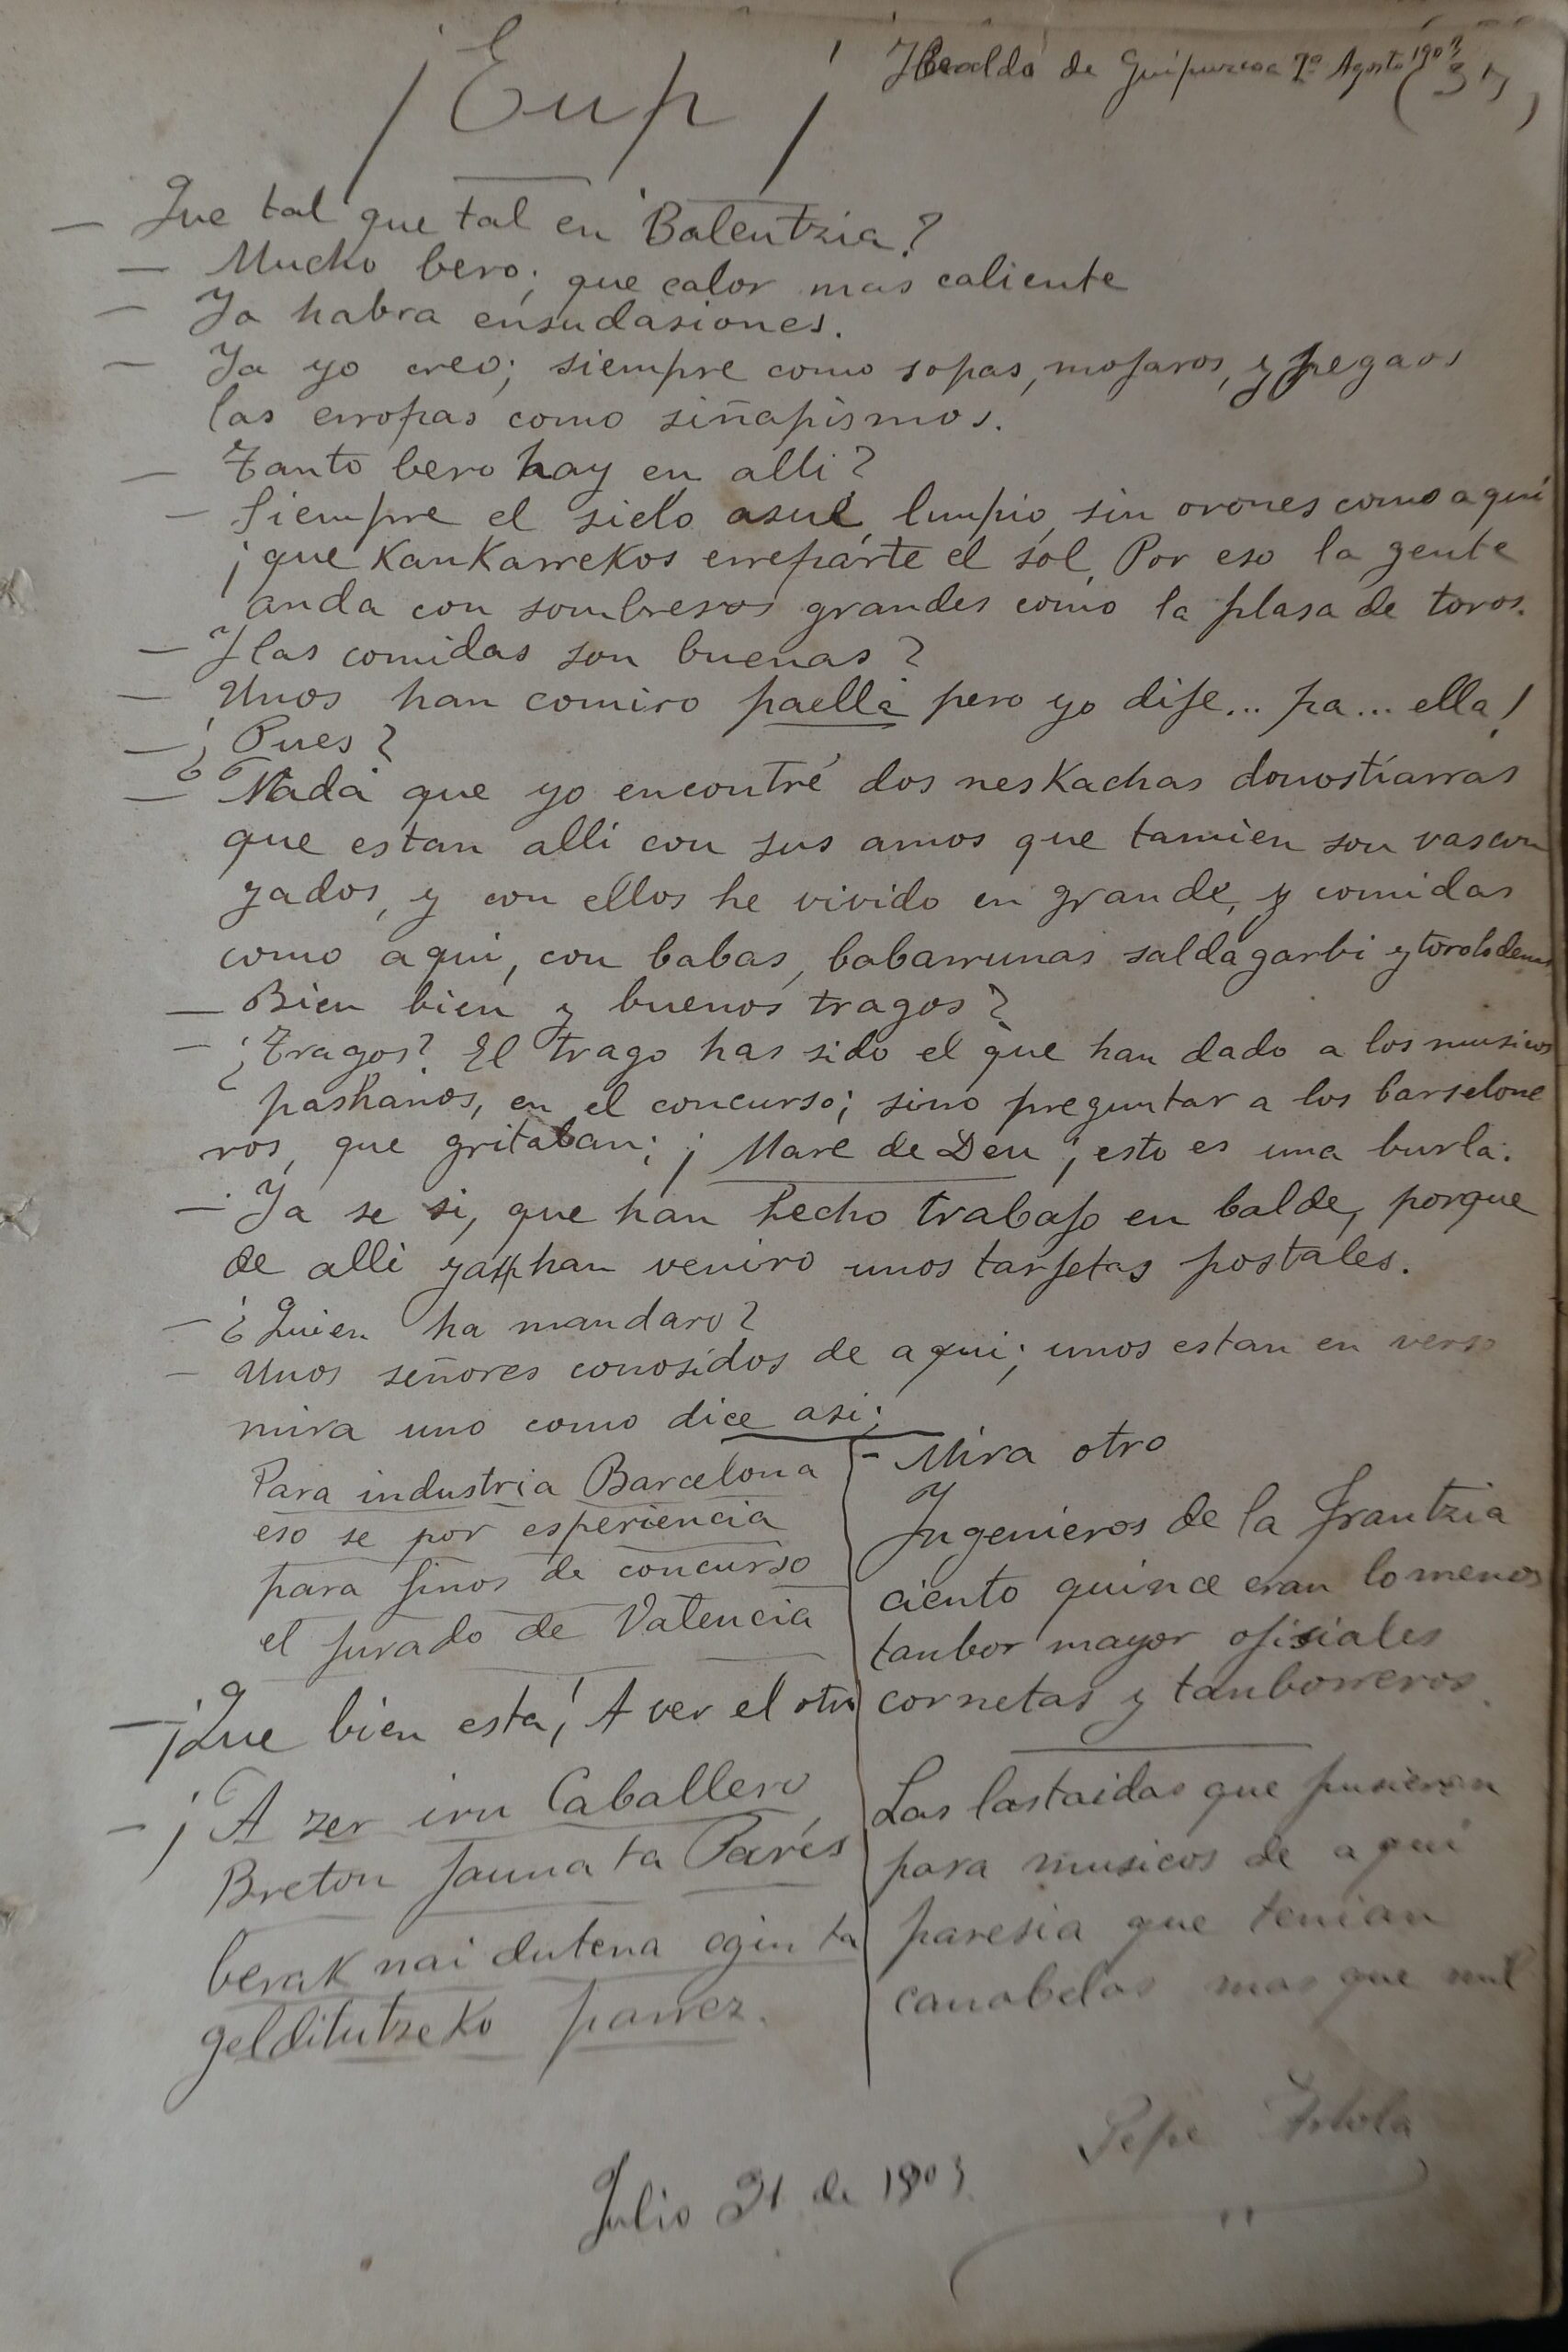 ¡Eup¡
Heraldo de Guipuzcoa 2º Agosto 1903 (37)
— Que tal que tal en Balentzia?
— Mucho bero; que calor mas caliente
— Ya habra ensudasiones.
— Ya yo creo; siempre como sopas, mojaros, y pegaos
las erropas como siñapismos.
— Tanto bero hay en alli?
— Siempre el sielo asul, limpio, sin orones como aqui
¡que Kankarrekos erreparte el sol, Por eso la gente
anda con sombreros grandes como la plasa de toros.
— Y las comidas son buenas?
— Unos han comiro paella pero yo dije... pa... ella!
— ¿Pues?
— Nada que yo encontré dos nesKachas donostiarras
que estan alli con sus amos que tamien son vascon
gados, y con ellos he vivido en grande, y comidas
como aqui, con babas, babarrunas saldagarbi y torolodemas
— Bien bien y buenos tragos?
— ¿Tragos? El trago has sido el que han dado a los musicos
pashanos, en el concurso; sino preguntar a los barselone
ros, que gritaban; ¡Mare de Deu¡ esto es una burla.
— Ya se si, que han hecho trabajo en balde, porque
de alli ya han veniro unos tarjetas postales.
— ¿Quien ha mandaro?
— Unos señores conosidos de aqui; unos estan en verso
mira uno como dice asi;
Para industria Barcelona
eso se por esperiencia
para finos de concurso
el jurado de Valencia
— ¡Que bien esta! A ver el otro
— ¡A zer iru Caballero
Breton jauna ta Parés
berak nai dutena egin ta
gelditutzeko parrez.
- Mira otro
Ingenieros de la Frantzia
ciento quince eran lo menos
tanbor mayor ofisiales
cornetas y tanborreros.
Las lastaidas que pusieron
para musicos de aqui
paresia que tenian
canabelas mas que mil
Pepe Artola
Julio 31 de 1903